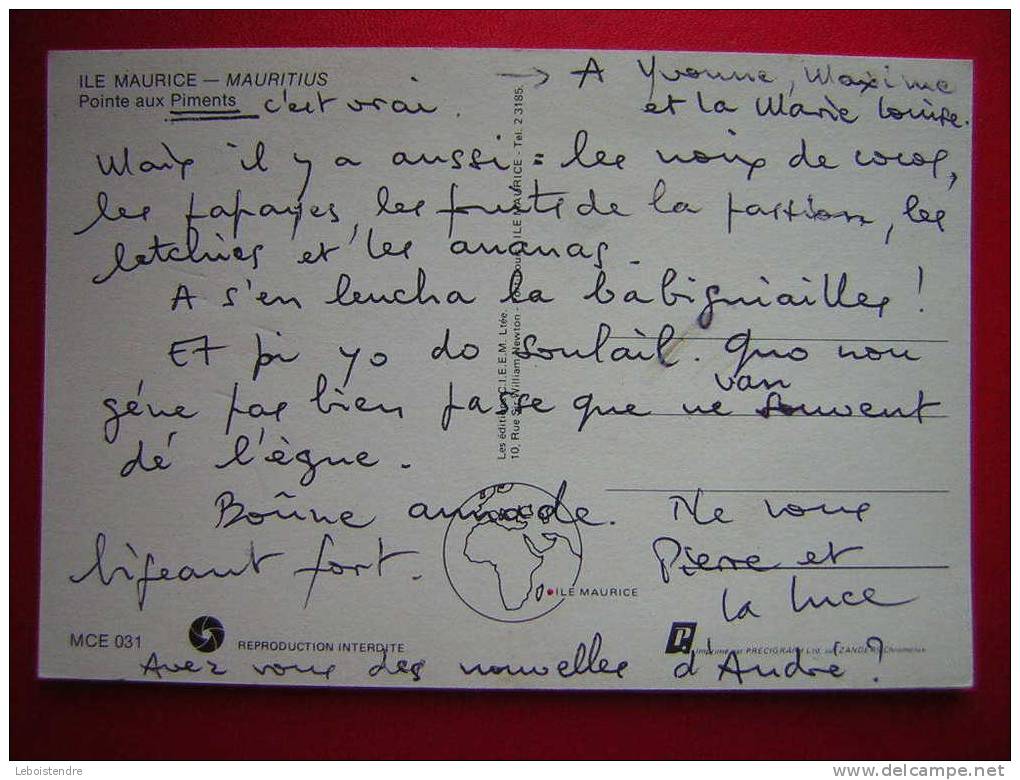 ILE MAURICE — MAURITIUS
Pointe aux Piments c'est vrai.
→ A Yvonne, Maxime
et la Marie Louise.
Mais il y a aussi : les noix de cocos,
les papayes, les fruits de la passion, les
letchies et les ananas.
A s'en leucha la babigniailles !
Et pi yo do soulail. Quo nou
géne pas bien pa se que ne van souvent
dé l'ègue.
Boûne annade. Ne vous
bigeant fort. Pierre et
la Luce
Les éditions C.I.E.E.M. Ltée.
10, Rue Sir William Newton - ILE MAURICE - Tel. 2 3185.
ILE MAURICE
MCE 031
REPRODUCTION INTERDITE
Imprimé par PRECIGRAPH Ltd. sur ZANDERS Chromolux
Avez vous des nouvelles d'André ?
Leboistendre
delcampe.net